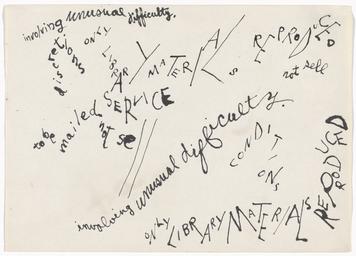 involving unusual difficulty.
discretions
ONLY
LIBRARY MATERIALS
REPRODUCED
not sell
to be
mailed
SERVICE
not se
CONDITIONS
involving unusual difficulty.
ONLY LIBRARY MATERIALS
REPRODUCED